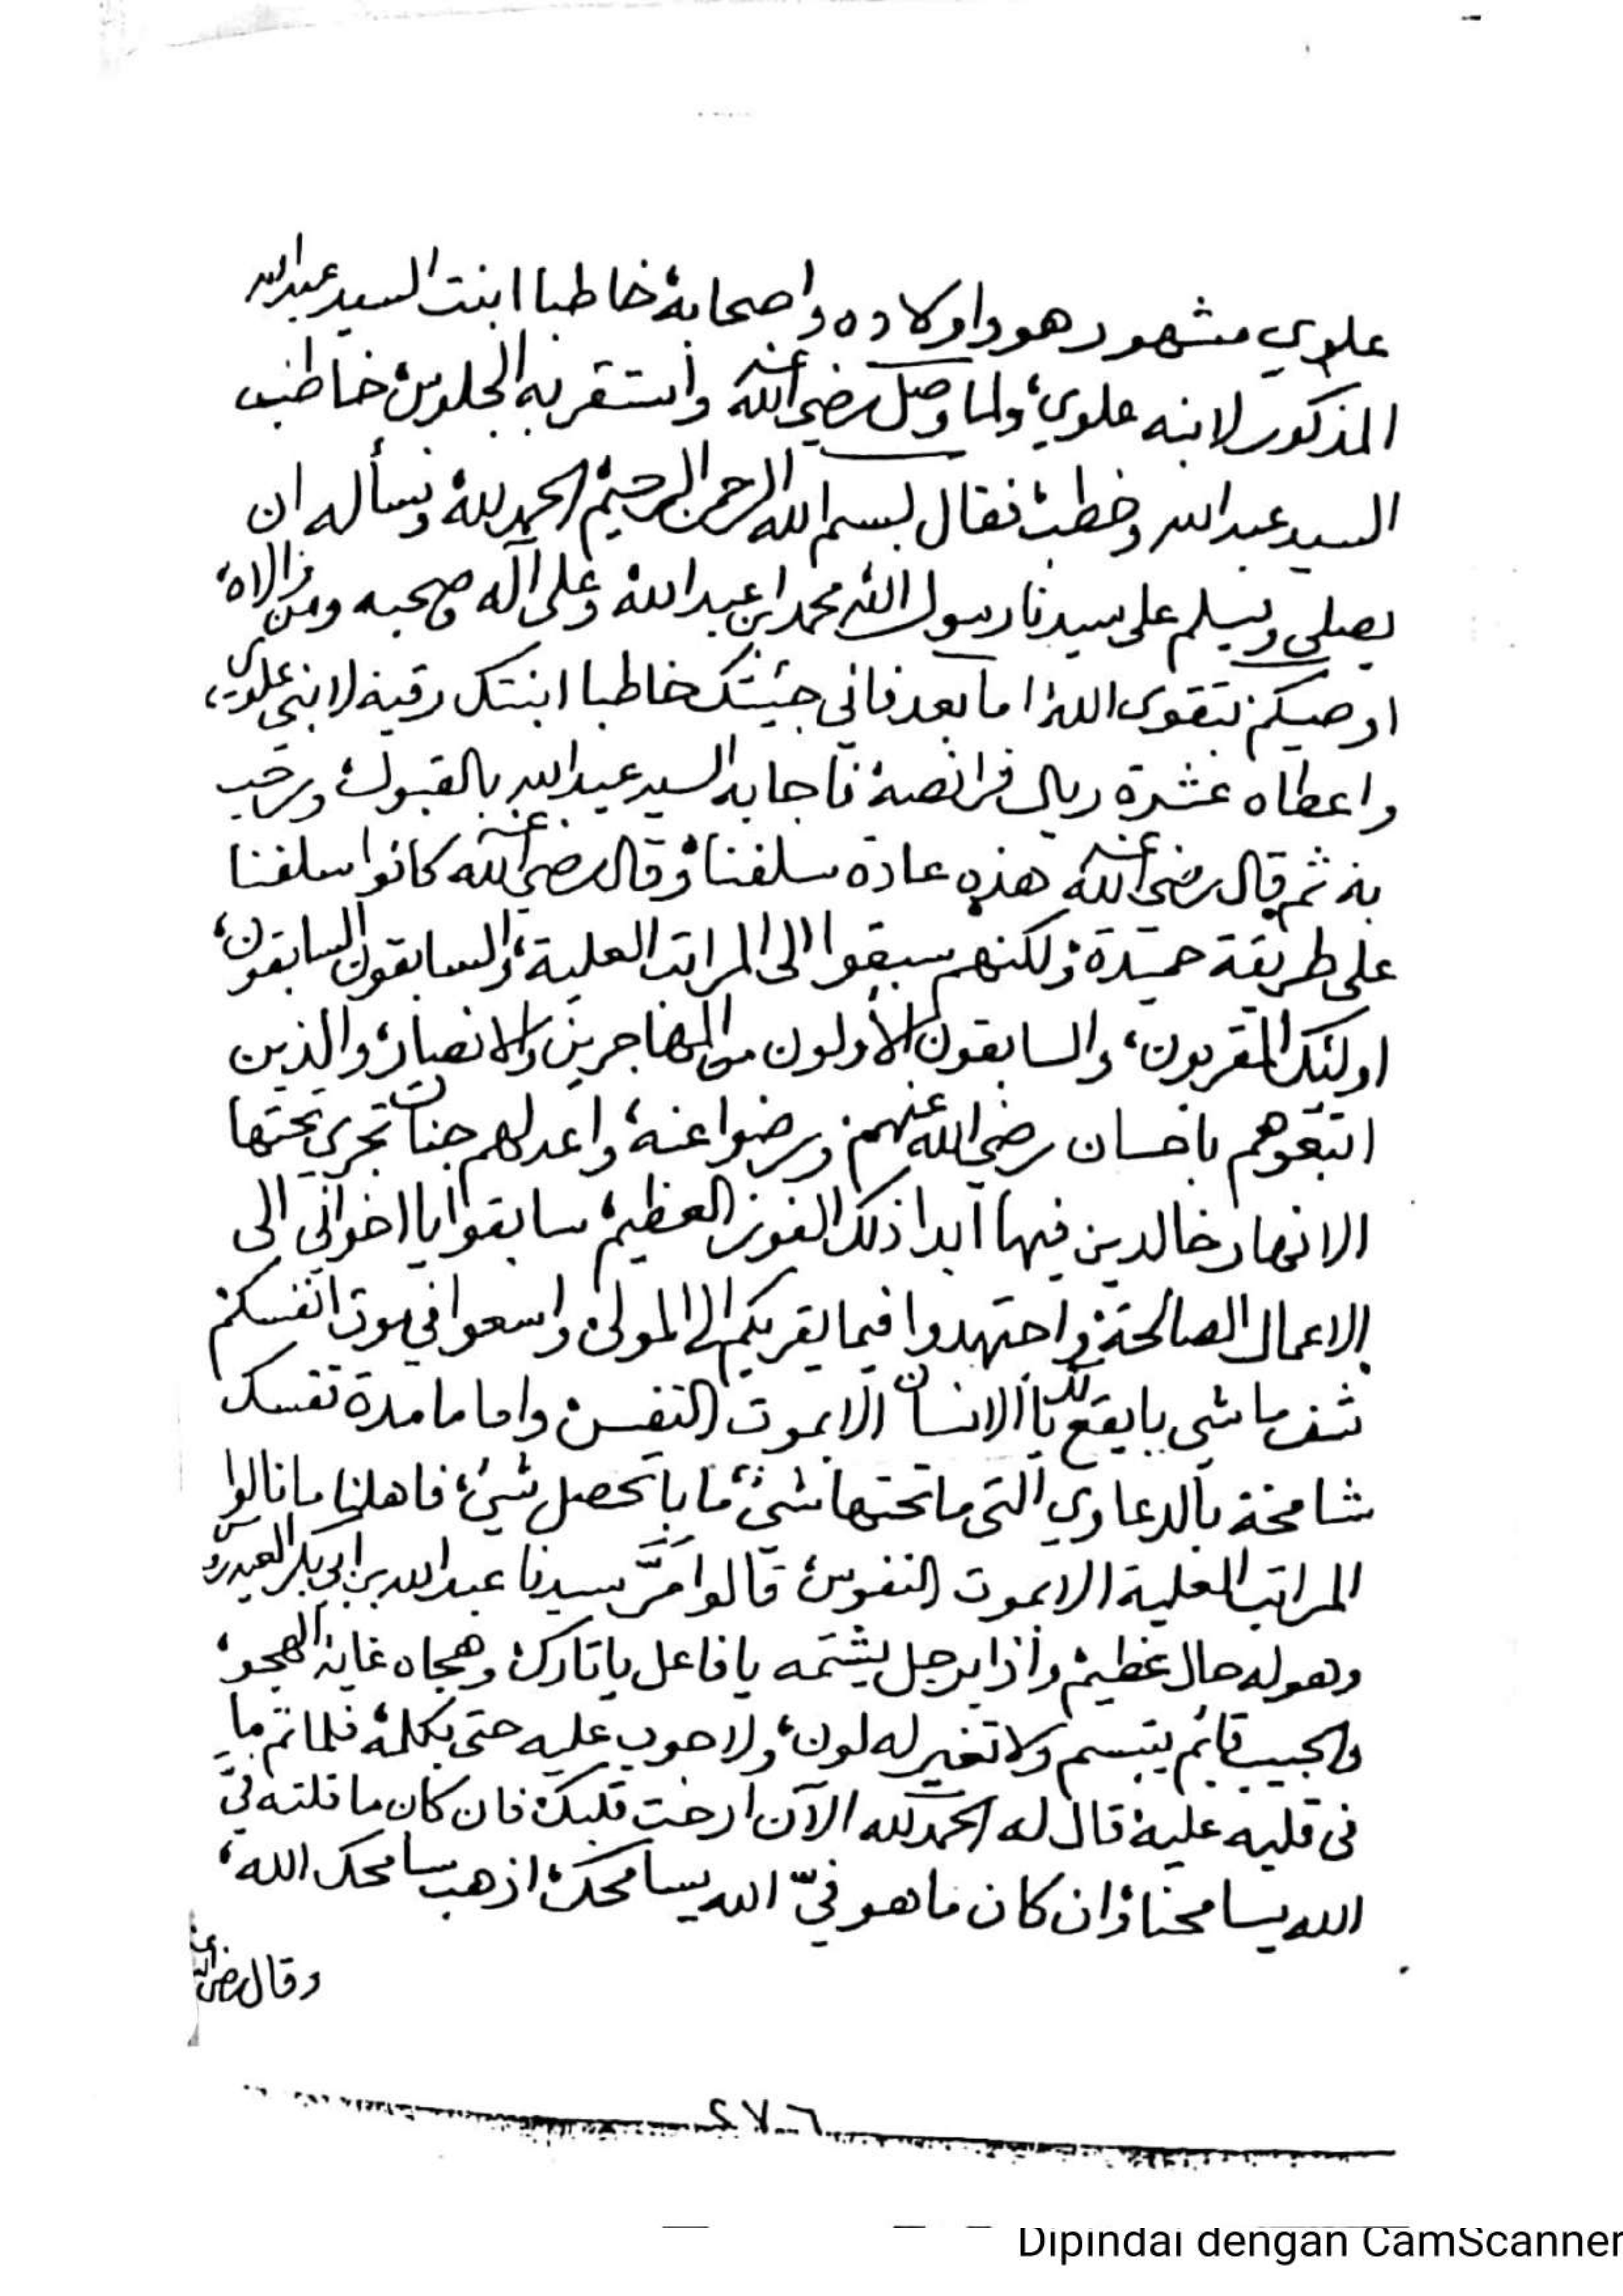 علوي مشهور هو واولاده واصحابه خاطبا ابنت السيد عبدالله
المذكور لابنه علوي، ولما وصل رضي الله عنه واستقر به الجلوس خاطب
السيد عبدالله وخطب، فقال بسم الله الرحمن الرحيم الحمد لله ونسأله ان
يصلي ويسلم على سيدنا رسول الله محمد ابن عبدالله وعلى آله وصحبه ومن والاه،
اوصيكم بتقوى الله، اما بعد فاني جيئتك خاطبا ابنتك رقية لابني علوي،
واعطاه عشرة ريال فرانصه فاجابه السيد عبدالله بالقبول، ورحب
به ثم قال رضي الله عنه هذه عادة سلفنا، وقال رضي الله عنه كانوا سلفنا
على طريقة حميدة، ولكنهم سبقوا الى المراتب العلية، والسابقون السابقون،
اولئك المقربون، والسابقون الأولون من المهاجرين والانصار والذين
اتبعوهم باحسان رضي الله عنهم ورضوا عنه، واعد لهم جنات تجري تحتها
الانهار خالدين فيها ابدا ذلك الفوز العظيم، سابقوا يا اخواني الى
الاعمال الصالحة، واجتهدوا فيما يقربكم الى المولى، واسعوا في موت انفسكم
شف ما شي بايقع لك يا الانسان الا بموت النفس، واما مامدة نفسك
شامخة بالدعاوي التي ما تحتها شيء ما باتحصل شيء، فاهلنا ما نالوا
المراتب العلية الا بموت النفوس، قالوا مَرَّ سيدنا عبدالله بن ابي بكر العيدروس
وهو له حال عظيم، واذا برجل يشتمه يا فاعل يا تارك، وهجاه غاية الهجو،
والحبيب قائم يتبسم ولا تغير له لون، ولا جوب عليه حتى بكلمة، فلما تم ما
في قلبه عليه، قال له الحمد لله الآن ارحت قلبك، فان كان ما قلته فيّ
الله يسامحنا، وان كان ما هو فيّ الله يسامحك، اذهب سامحك الله،
وقال رضي الله عنه
٢٧٦
Dipindai dengan CamScanner